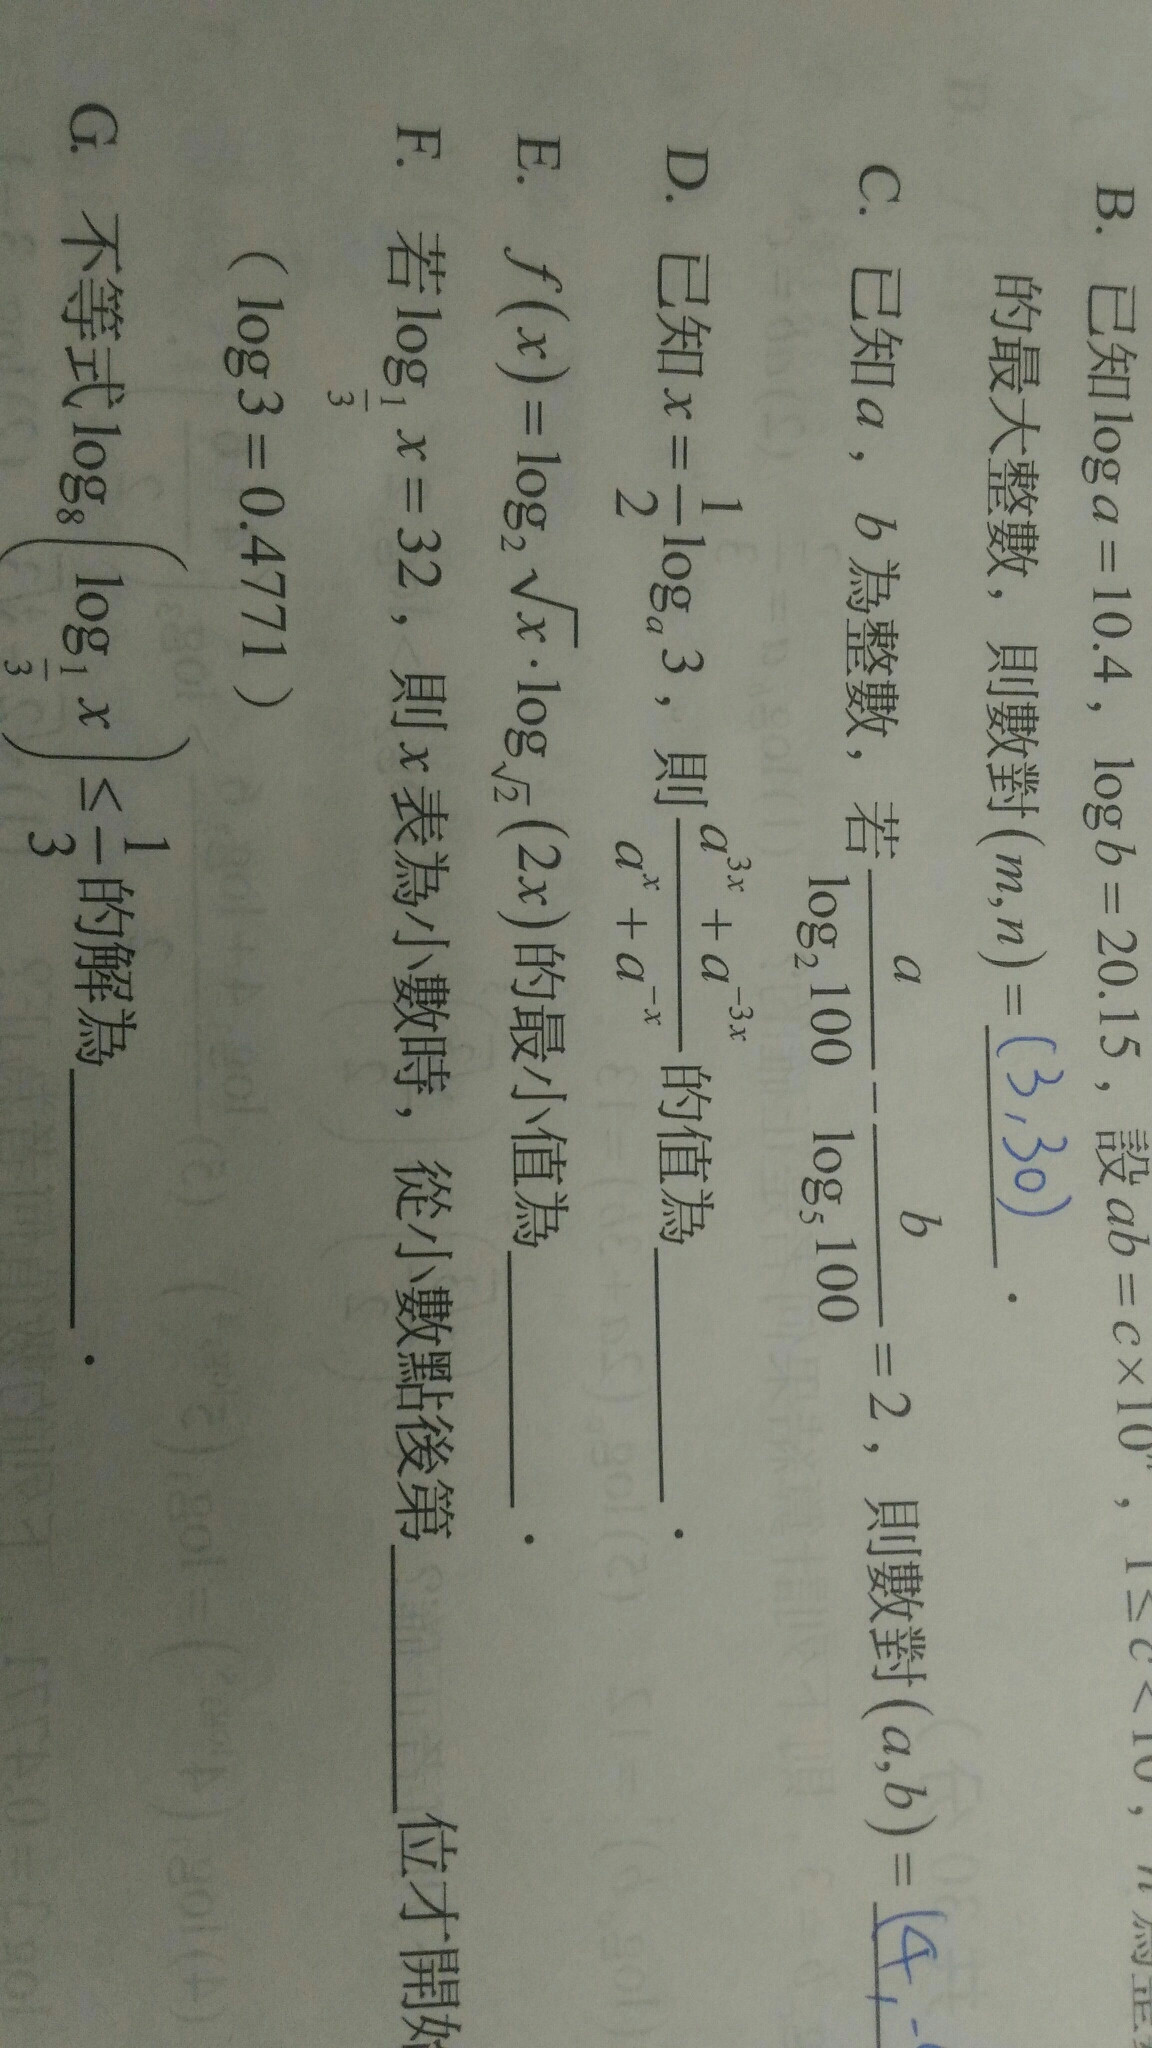 B. 已知 log a = 10.4，log b = 20.15，設 ab = c×10ⁿ，1 ≤ c < 10，n 為
的最大整數，則數對 (m,n) = (3,30)．
C. 已知 a，b 為整數，若 a/log₂100 − b/log₅100 = 2，則數對 (a,b) = (4,-
D. 已知 x = 1/2 logₐ 3，則 (a³ˣ + a⁻³ˣ)/(aˣ + a⁻ˣ) 的值為______．
E. f(x) = log₂ √x · log_√2 (2x) 的最小值為______．
F. 若 log_(1/3) x = 32，則 x 表為小數時，從小數點後第______位才開始
（log 3 = 0.4771）
G. 不等式 log₈ (log_(1/3) x) ≤ 1/3 的解為______．